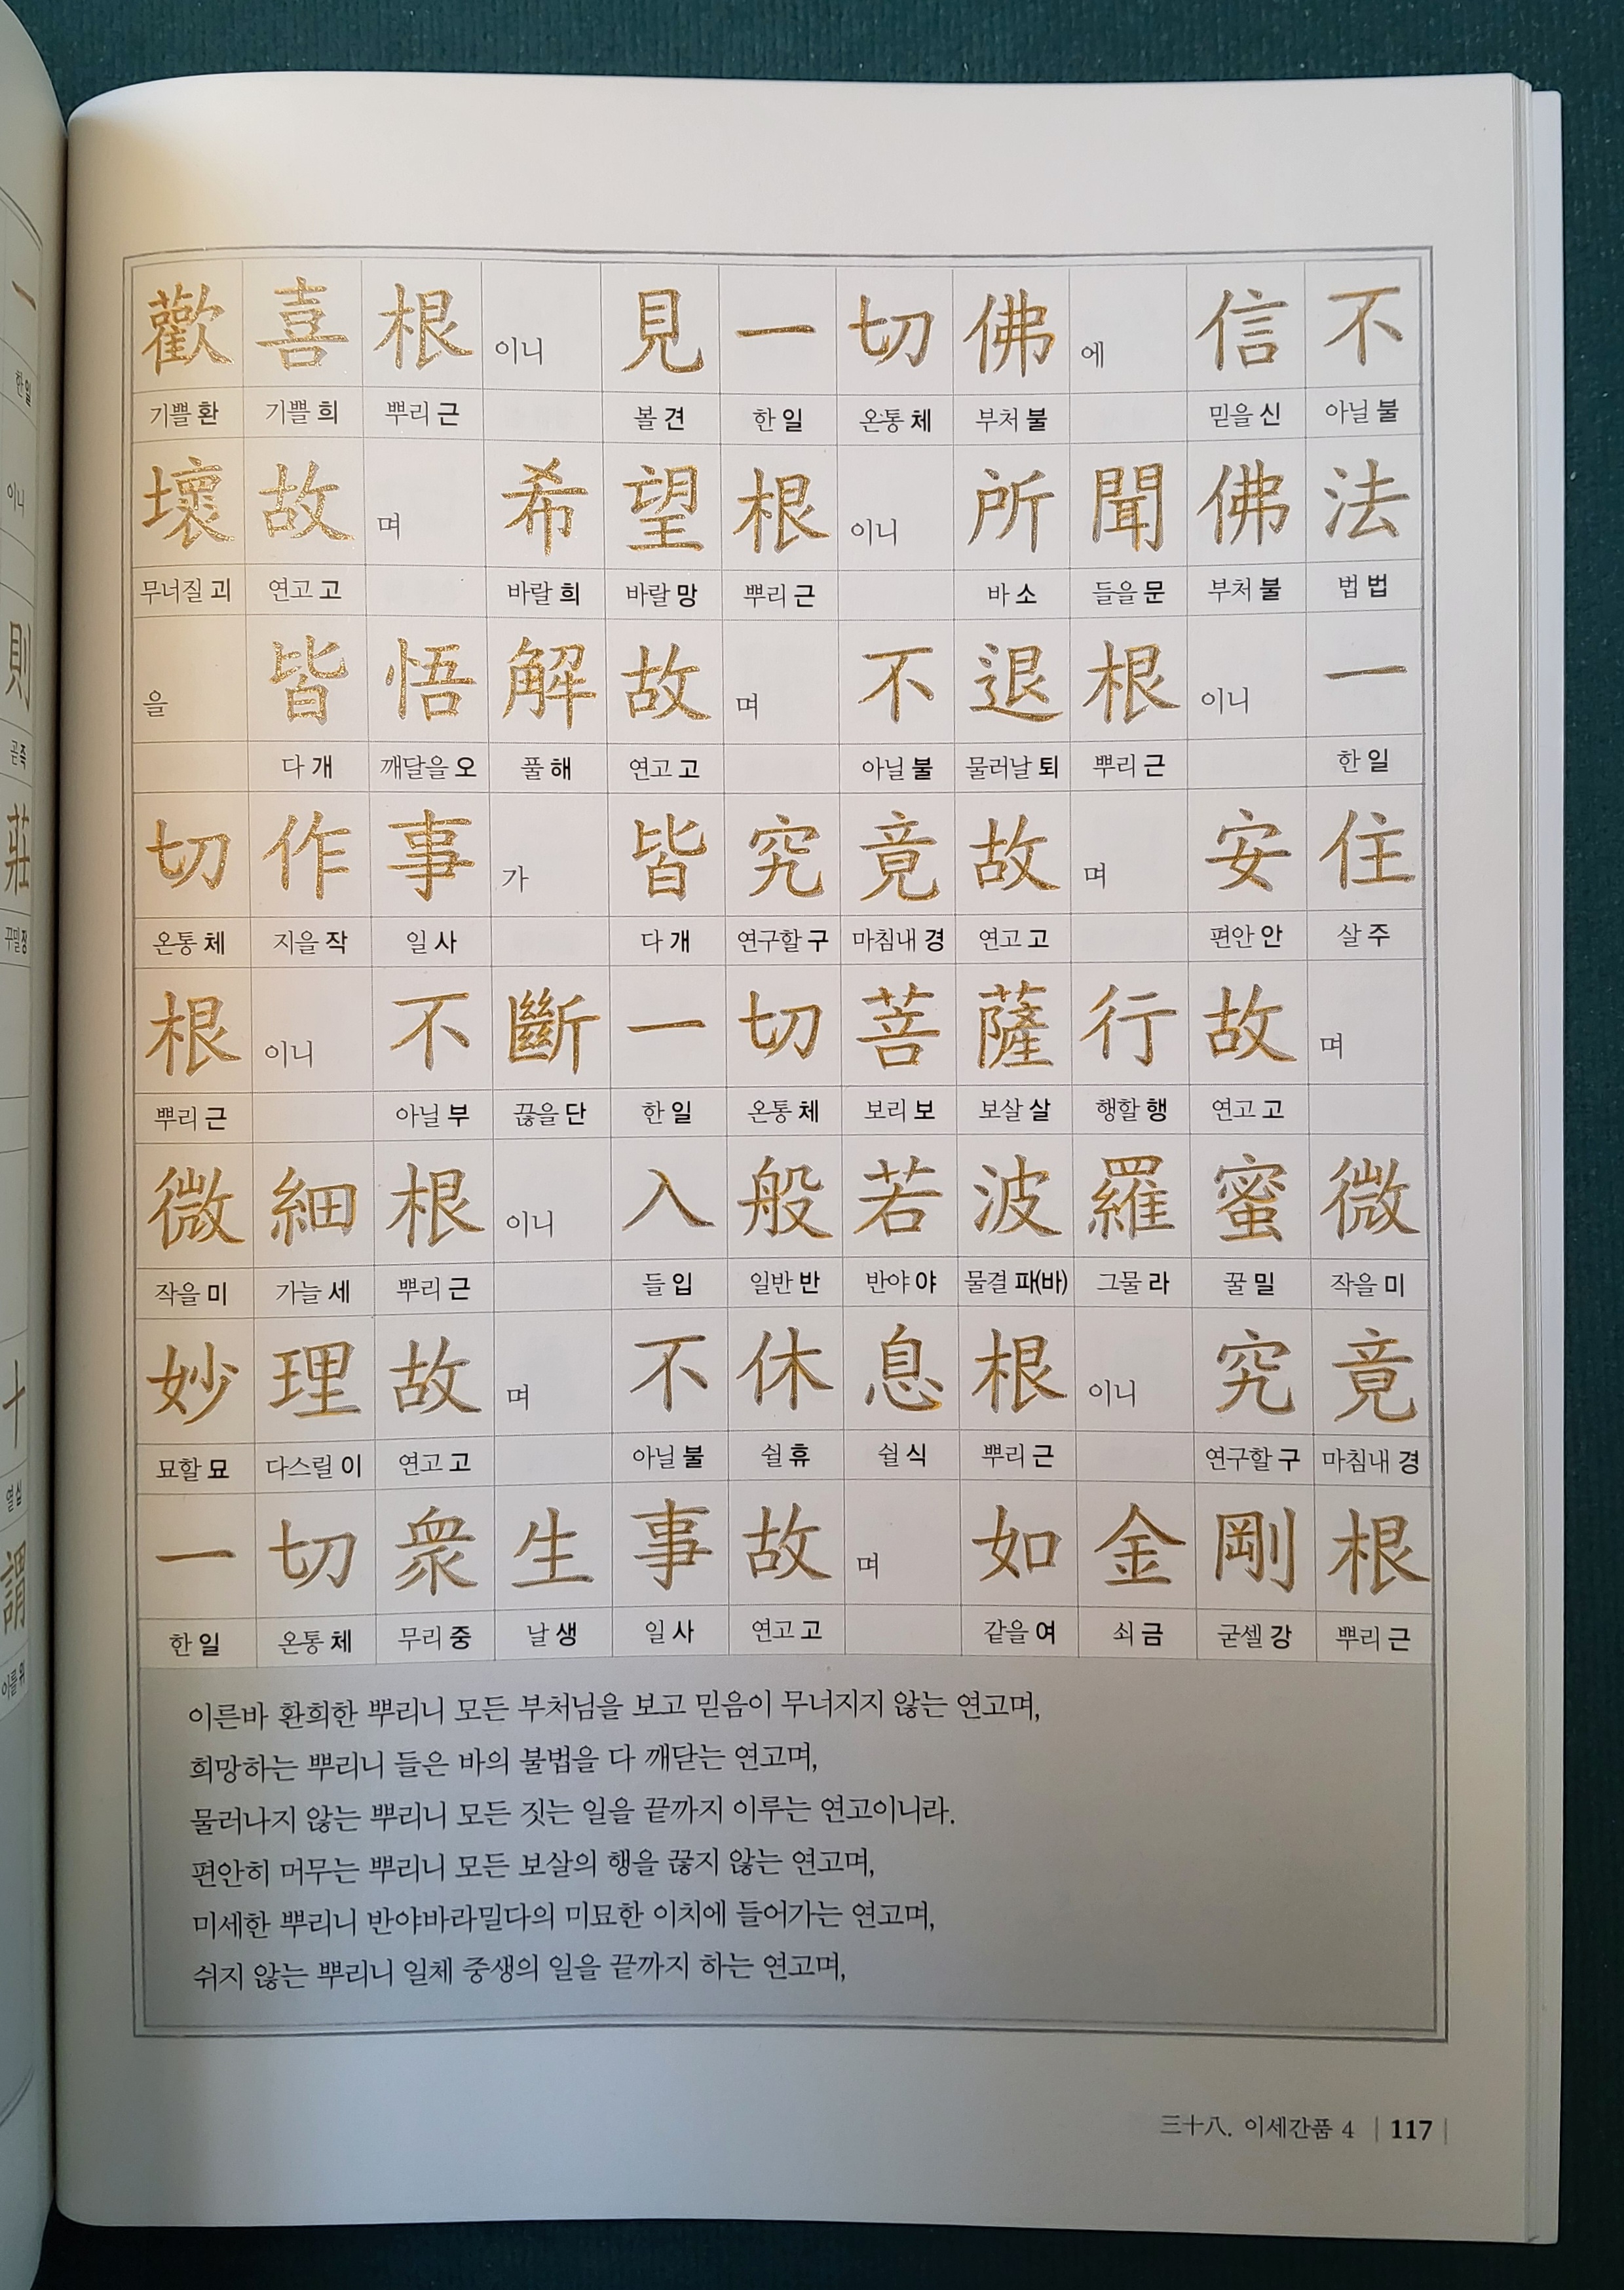 歡 喜 根 이니 見 一 切 佛 에 信 不
기쁠 환 기쁠 희 뿌리 근 볼 견 한 일 온통 체 부처 불 믿을 신 아닐 불
壞 故 며 希 望 根 이니 所 聞 佛 法
무너질 괴 연고 고 바랄 희 바랄 망 뿌리 근 바 소 들을 문 부처 불 법 법
을 皆 悟 解 故 며 不 退 根 이니 一
다 개 깨달을 오 풀 해 연고 고 아닐 불 물러날 퇴 뿌리 근 한 일
切 作 事 가 皆 究 竟 故 며 安 住
온통 체 지을 작 일 사 다 개 연구할 구 마침내 경 연고 고 편안 안 살 주
根 이니 不 斷 一 切 菩 薩 行 故 며
뿌리 근 아닐 부 끊을 단 한 일 온통 체 보리 보 보살 살 행할 행 연고 고
微 細 根 이니 入 般 若 波 羅 蜜 微
작을 미 가늘 세 뿌리 근 들 입 일반 반 반야 야 물결 파(바) 그물 라 꿀 밀 작을 미
妙 理 故 며 不 休 息 根 이니 究 竟
묘할 묘 다스릴 이 연고 고 아닐 불 쉴 휴 쉴 식 뿌리 근 연구할 구 마침내 경
一 切 衆 生 事 故 며 如 金 剛 根
한 일 온통 체 무리 중 날 생 일 사 연고 고 같을 여 쇠 금 굳셀 강 뿌리 근
이른바 환희한 뿌리니 모든 부처님을 보고 믿음이 무너지지 않는 연고며,
희망하는 뿌리니 들은 바의 불법을 다 깨닫는 연고며,
물러나지 않는 뿌리니 모든 짓는 일을 끝까지 이루는 연고이니라.
편안히 머무는 뿌리니 모든 보살의 행을 끊지 않는 연고며,
미세한 뿌리니 반야바라밀다의 미묘한 이치에 들어가는 연고며,
쉬지 않는 뿌리니 일체 중생의 일을 끝까지 하는 연고며,
三十八. 이세간품 4 | 117 |
一
한 일
이니
則
곧 즉
莊
꾸밀 장
十
열 십
謂
이를 위